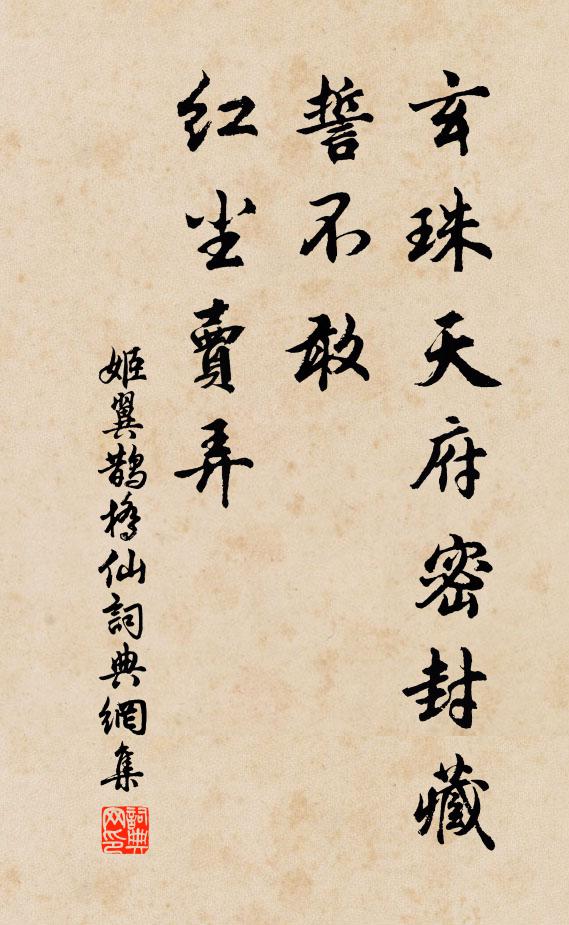 玄珠天府密封藏
誓不敢
红尘賣弄
姬翼鵲橋仙詞典網集
詞典网印